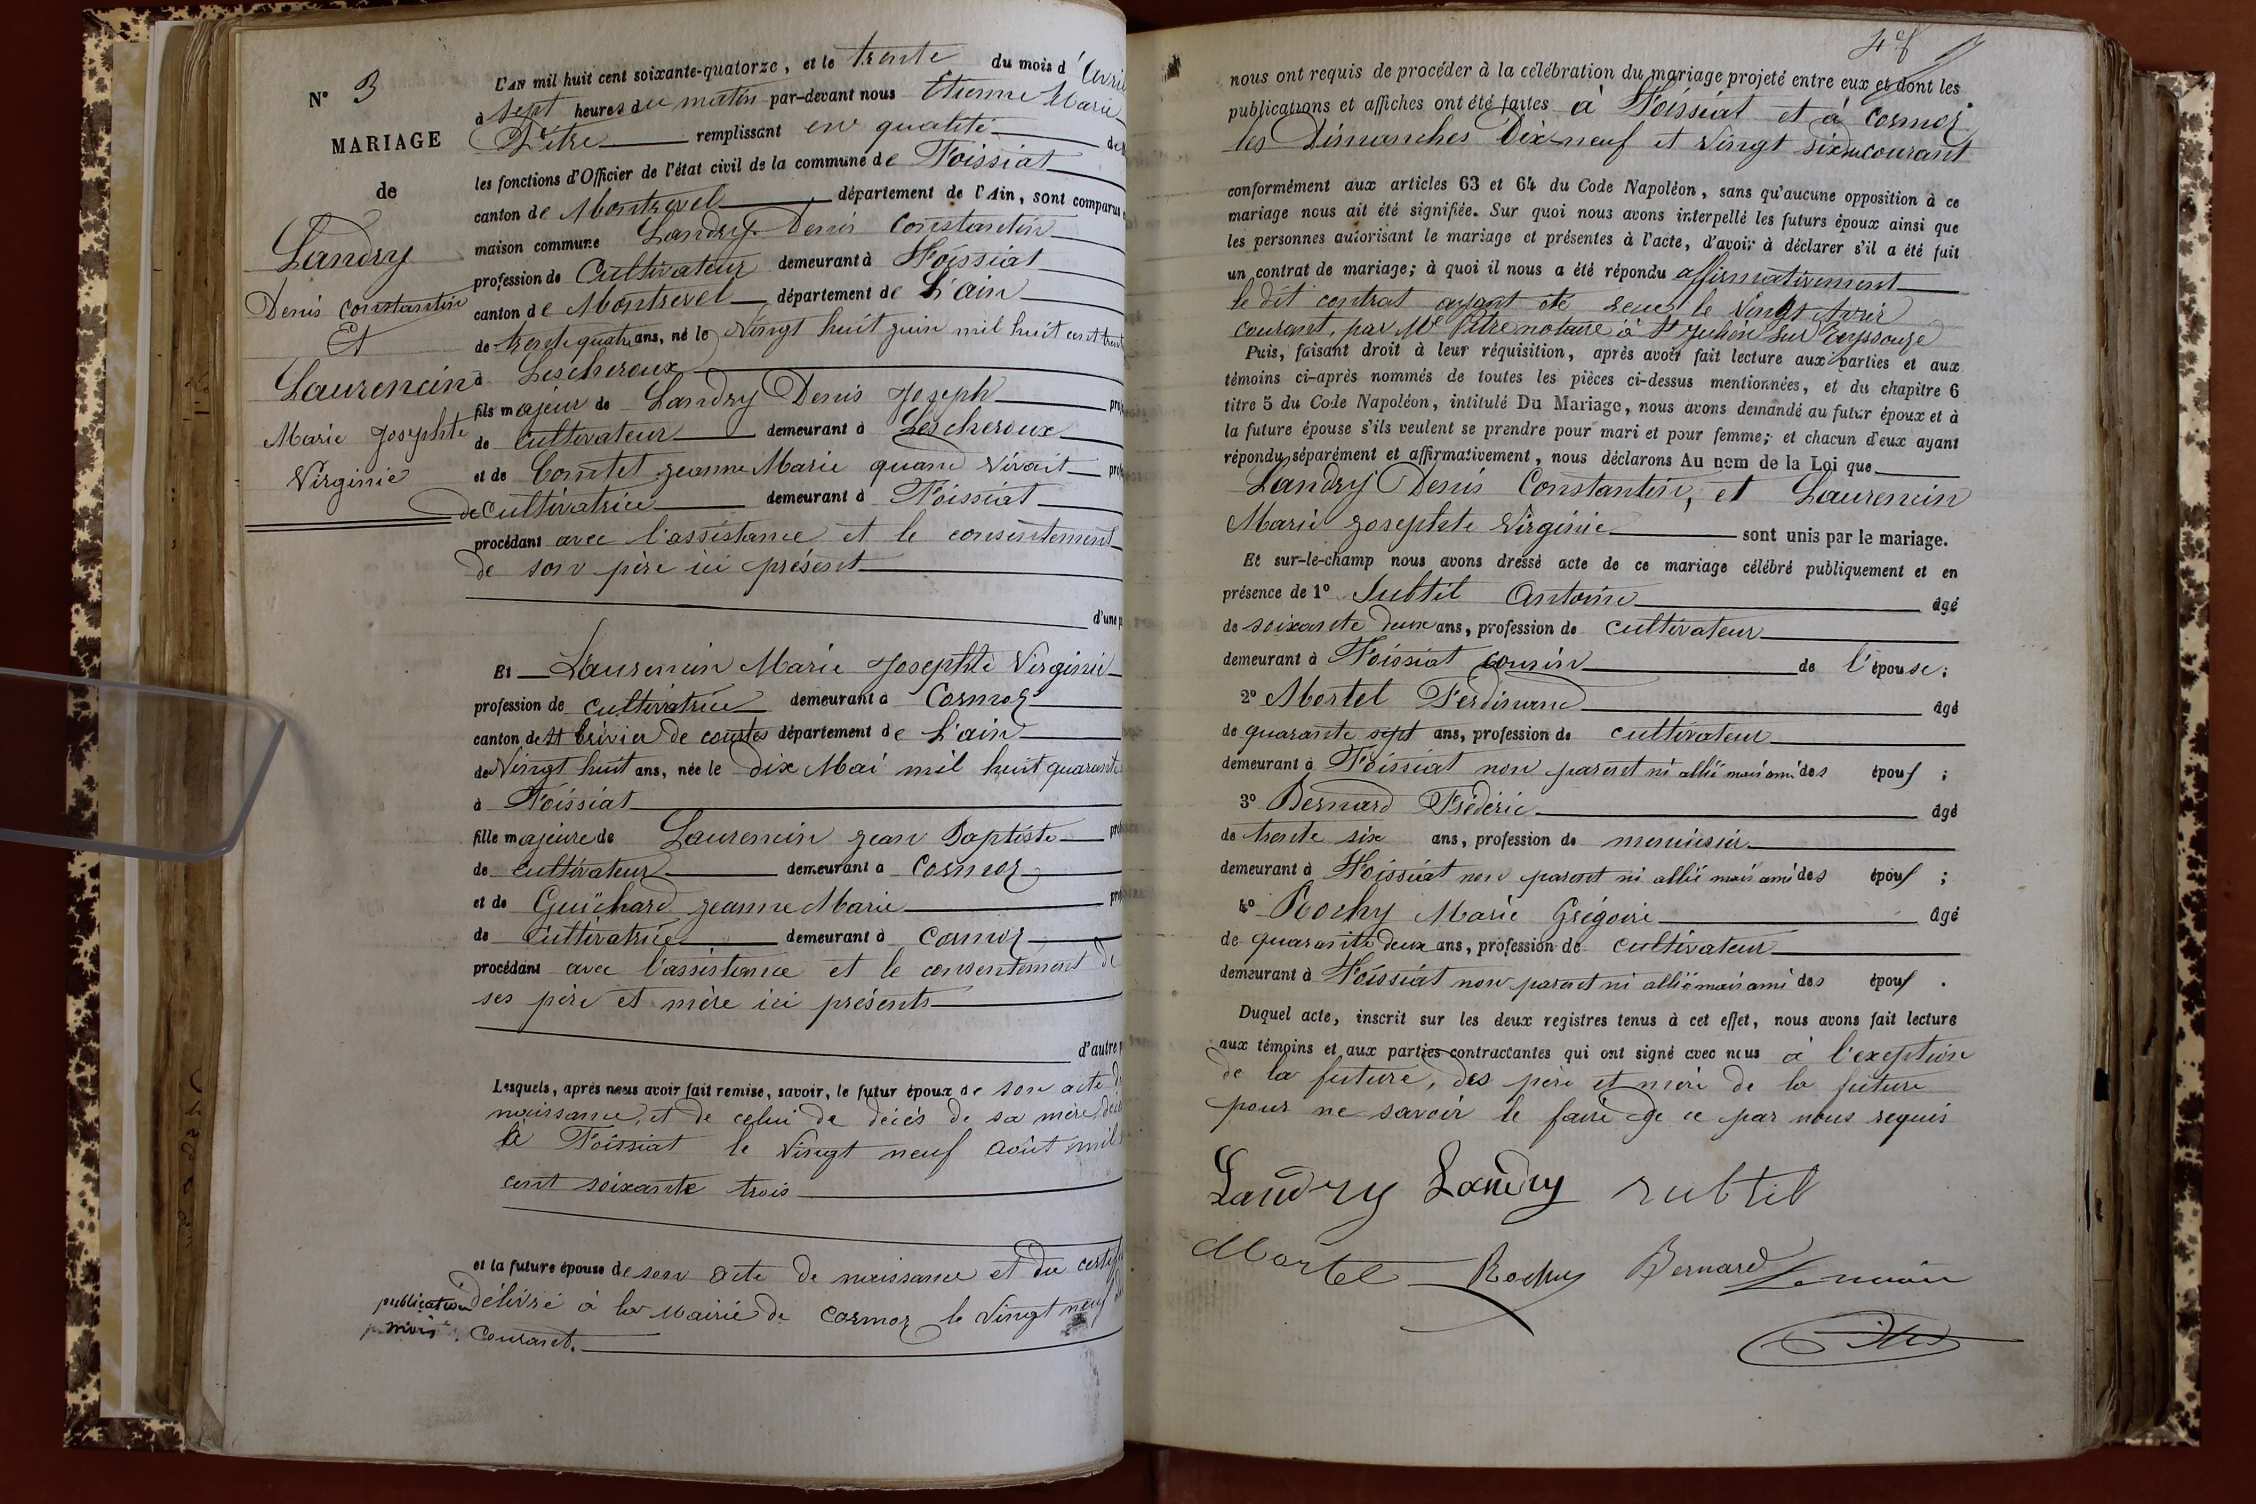 N° 3
MARIAGE
de
Landry
Denis Constantin
Et
Laurencin
Marie Josephte
Virginie
L'AN mil huit cent soixante-quatorze, et le trente du mois d'Avril
à sept heures du matin par-devant nous Etienne Marie
Pitre remplissant en qualité de
les fonctions d'Officier de l'état civil de la commune de Foissiat
canton de Montrevel département de l'Ain, sont comparus
maison commune Landry Denis Constantin
profession de Cultivateur demeurant à Foissiat
canton de Montrevel département de L'ain
de trente quatre ans, né le Vingt huit juin mil huit cent trent
à Lescheroux
fils majeur de Landry Denis Joseph
de cultivateur demeurant à Lescheroux
et de Comtet jeanne Marie quand vivait
de cultivatrice demeurant à Foissiat
procédant avec l'assistance et le consentement
de son père ici présent
d'une p
Et Laurencin Marie Josephte Virginie
profession de cultivatrice demeurant à Cormoz
canton de St trivier de courtes département de L'ain
de Vingt huit ans, née le dix Mai mil huit quarante
à Foissiat
fille majeure de Laurencin jean Baptiste
de cultivateur demeurant à Cormoz
et de Guichard jeanne Marie
de Cultivatrice demeurant à cormoz
procédant avec l'assistance et le consentement de
ses père et mère ici présents
d'autre p
Lesquels, après nous avoir fait remise, savoir, le futur époux de son acte de
naissance, et de celui de décès de sa mère, décé
à Foissiat le vingt neuf août mil
cent soixante trois
et la future épouse de son acte de naissance et du certif
publication délivré à la Mairie de Cormoz le vingt neuf
courant.
nous ont requis de procéder à la célébration du mariage projeté entre eux et dont les
publications et affiches ont été faites à Foissiat et à Cormoz
les Dimanches Dix neuf et Vingt six du courant
conformément aux articles 63 et 64 du Code Napoléon, sans qu'aucune opposition à ce
mariage nous ait été signifiée. Sur quoi nous avons interpellé les futurs époux ainsi que
les personnes autorisant le mariage et présentes à l'acte, d'avoir à déclarer s'il a été fait
un contrat de mariage; à quoi il nous a été répondu affirmativement
le dit contrat ayant été reçu le Vingt Avril
courant, par Me Pitre notaire à St julien sur Reyssouze
Puis, faisant droit à leur réquisition, après avoir fait lecture aux parties et aux
témoins ci-après nommés de toutes les pièces ci-dessus mentionnées, et du chapitre 6
titre 5 du Code Napoléon, intitulé Du Mariage, nous avons demandé au futur époux et à
la future épouse s'ils veulent se prendre pour mari et pour femme; et chacun d'eux ayant
répondu séparément et affirmativement, nous déclarons Au nom de la Loi que
Landry Denis Constantin, et Laurencin
Marie Josephte Virginie sont unis par le mariage.
Et sur-le-champ nous avons dressé acte de ce mariage célébré publiquement et en
présence de 1° Subtil Antoine âgé
de soixante deux ans, profession de cultivateur
demeurant à Foissiat cousin de l'épouse;
2° Mortel Ferdinand âgé
de quarante sept ans, profession de cultivateur
demeurant à Foissiat non parent ni allié mais ami des époux;
3° Bernard Frédéric âgé
de trente six ans, profession de menuisier
demeurant à Foissiat non parent ni allié mais ami des époux;
4° Rochy Marie Grégoire âgé
de quarante deux ans, profession de cultivateur
demeurant à Foissiat non parent ni allié mais ami des époux.
Duquel acte, inscrit sur les deux registres tenus à cet effet, nous avons fait lecture
aux témoins et aux parties contractantes qui ont signé avec nous à l'exeption
de la future, des père et mère de la future
pour ne savoir le faire de ce par nous requis
Landry Landry subtil
Mortel Rochy Bernard
Pitre